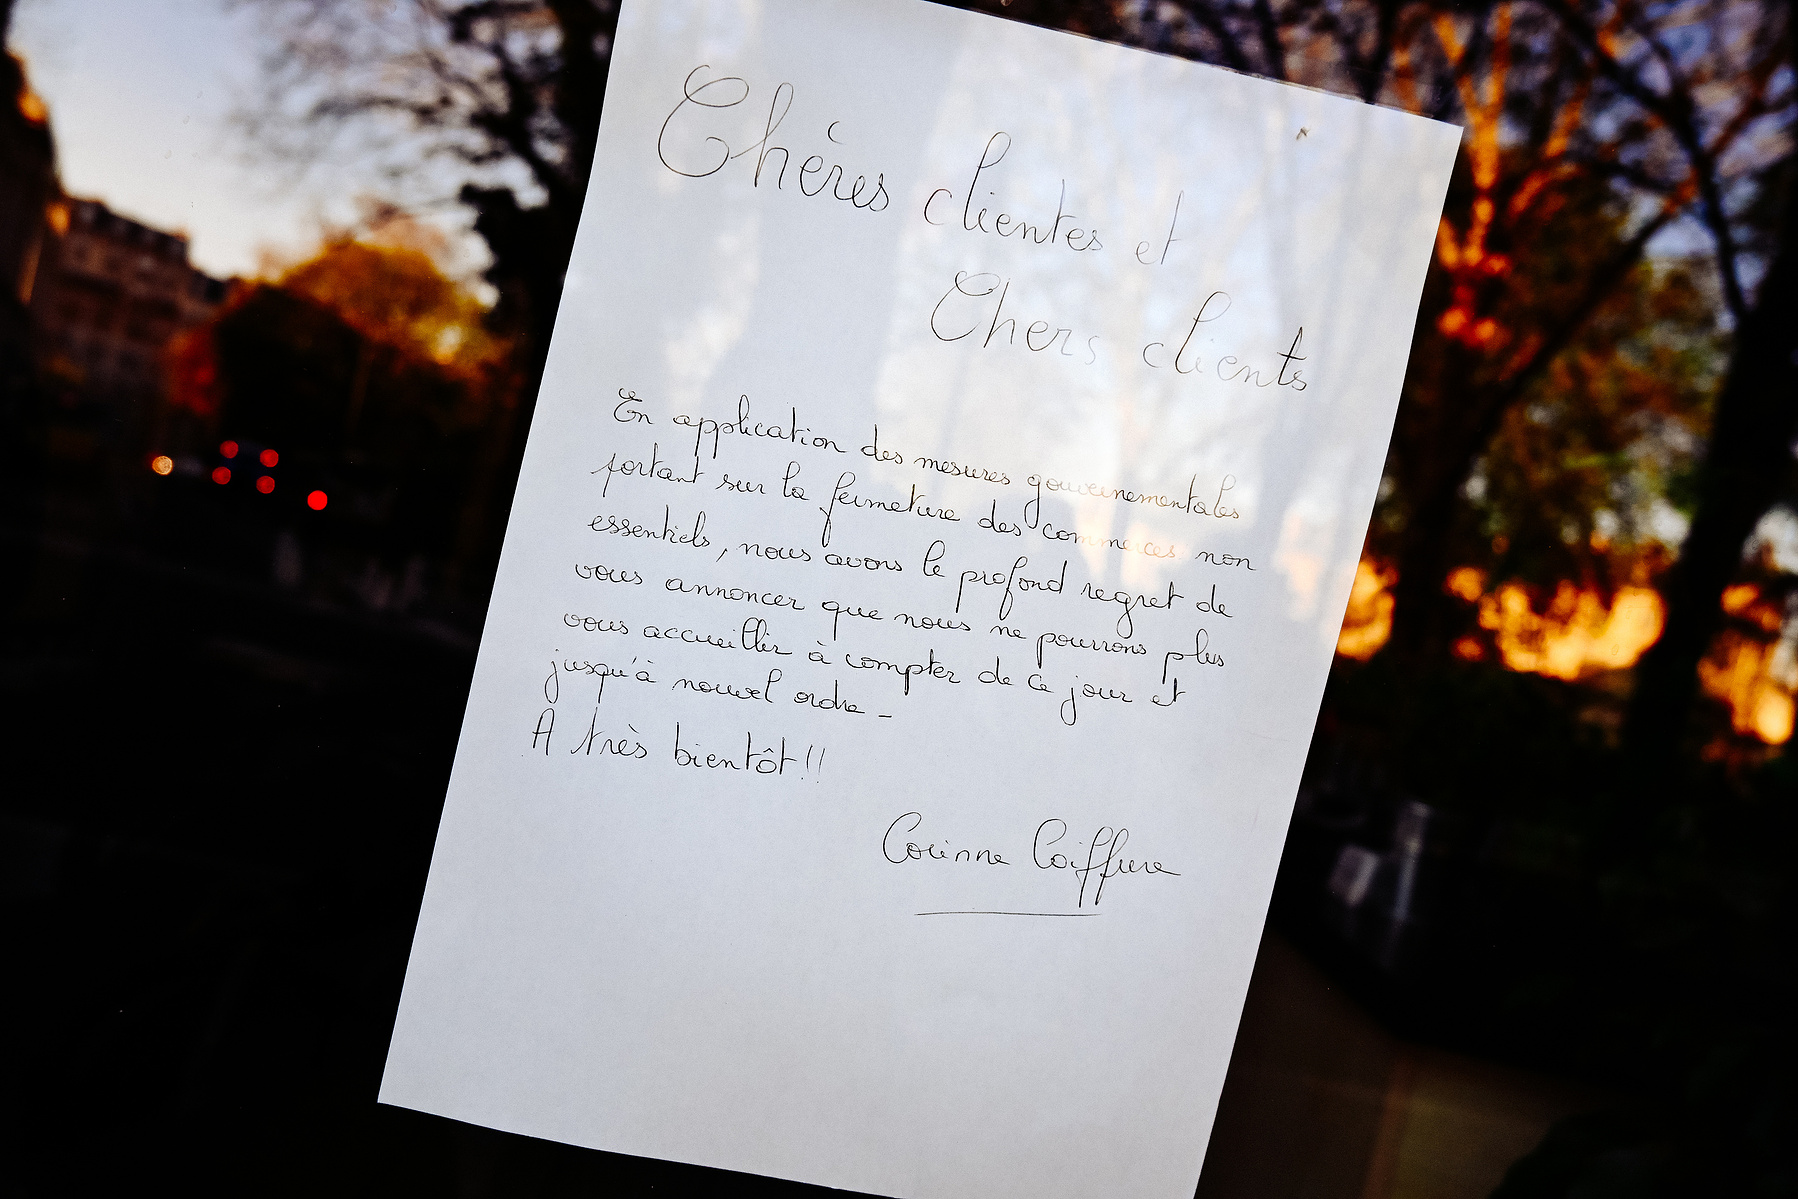 Chères clientes et
Chers clients
En application des mesures gouvernementales
portant sur la fermeture des commerces non
essentiels, nous avons le profond regret de
vous annoncer que nous ne pourrons plus
vous accueillir à compter de ce jour et
jusqu'à nouvel ordre -
A très bientôt !!
Corinne Coiffure